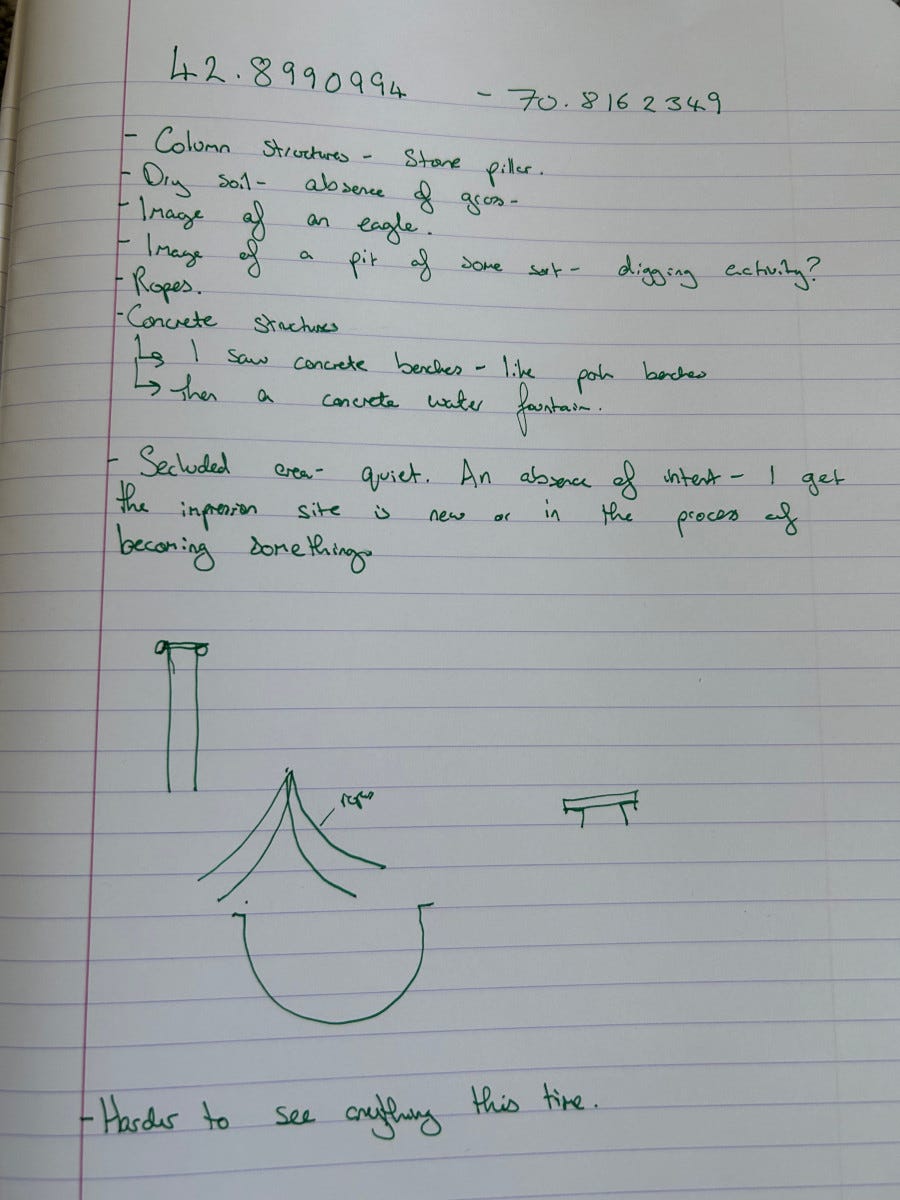 42.8990994 - 70.8162349
- Column structures - Stone piller.
- Dry soil - absence of grass -
- Image of an eagle.
- Image of a pit of some sort - digging activity?
- Ropes.
- Concrete structures
↳ I saw concrete benches - like park benches
↳ then a concrete water fountain.
- Secluded area - quiet. An absence of intent - I get
the impression site is new or in the process of
becoming something
ropes
- Harder to see anything this time.